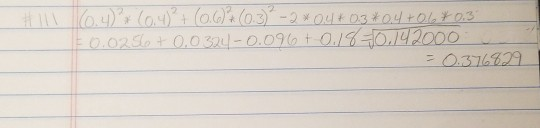 #111 (0.4)²*(0.4)²+(0.6)²*(0.3)²-2*0.4*0.3*0.4+0.6*0.3
=0.0256+0.0324-0.096+0.18=√0.142000
=0.376829